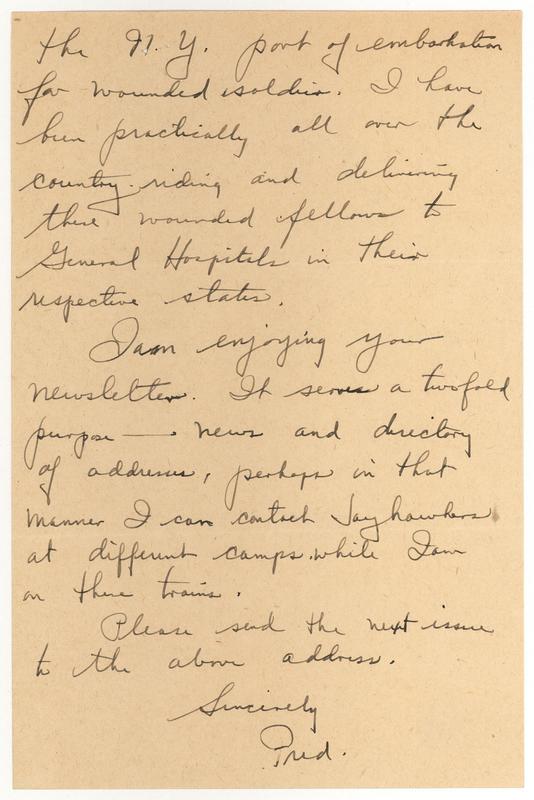 the N.Y. port of embarkation
for wounded soldier. I have
been practically all over the
country riding and delivering
these wounded fellows to
General Hospitals in their
respective states.
I am enjoying your
newsletter. It serves a twofold
purpose — news and directory
of addresses, perhaps in that
manner I can contact Jayhawkers
at different camps while I am
on these trains.
Please send the next issue
to the above address.
Sincerely
Fred.